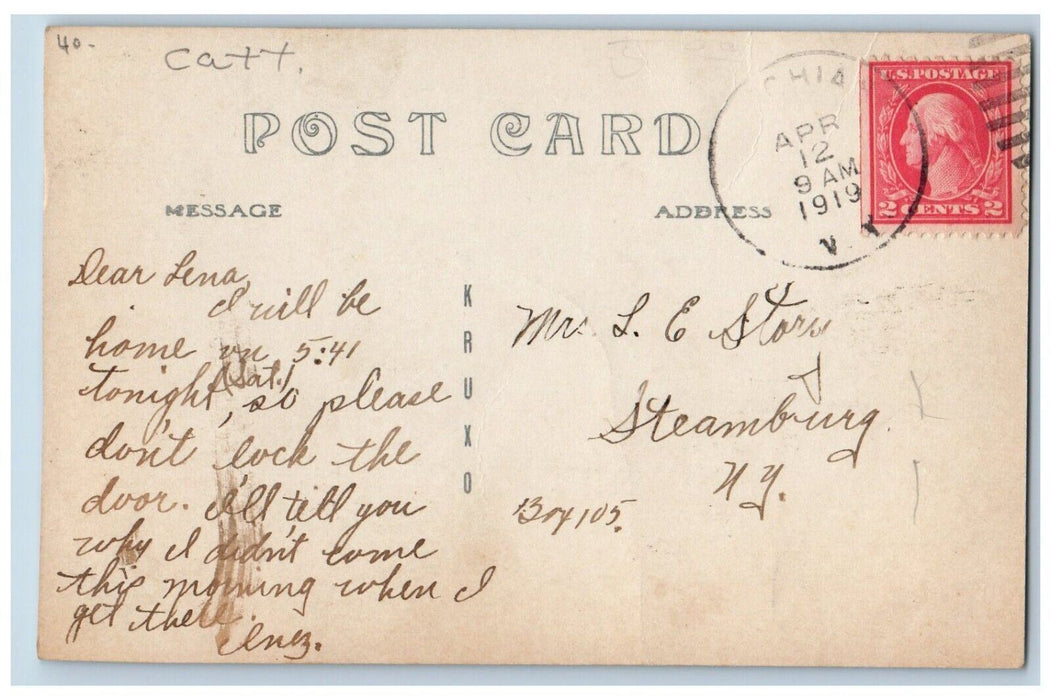 40-
Catt.
POST CARD
CHIA
APR
12
9 AM
1919
N.Y.
U.S. POSTAGE
2 CENTS 2
MESSAGE
ADDRESS
Dear Lena,
I will be
home on 5:41
tonight (Sat.), so please
don't lock the
door. I'll tell you
why I didn't come
this morning when I
get there.
Inez.
KRUXO
Mrs L. E Story
Steamburg
N.Y.
Box 105.